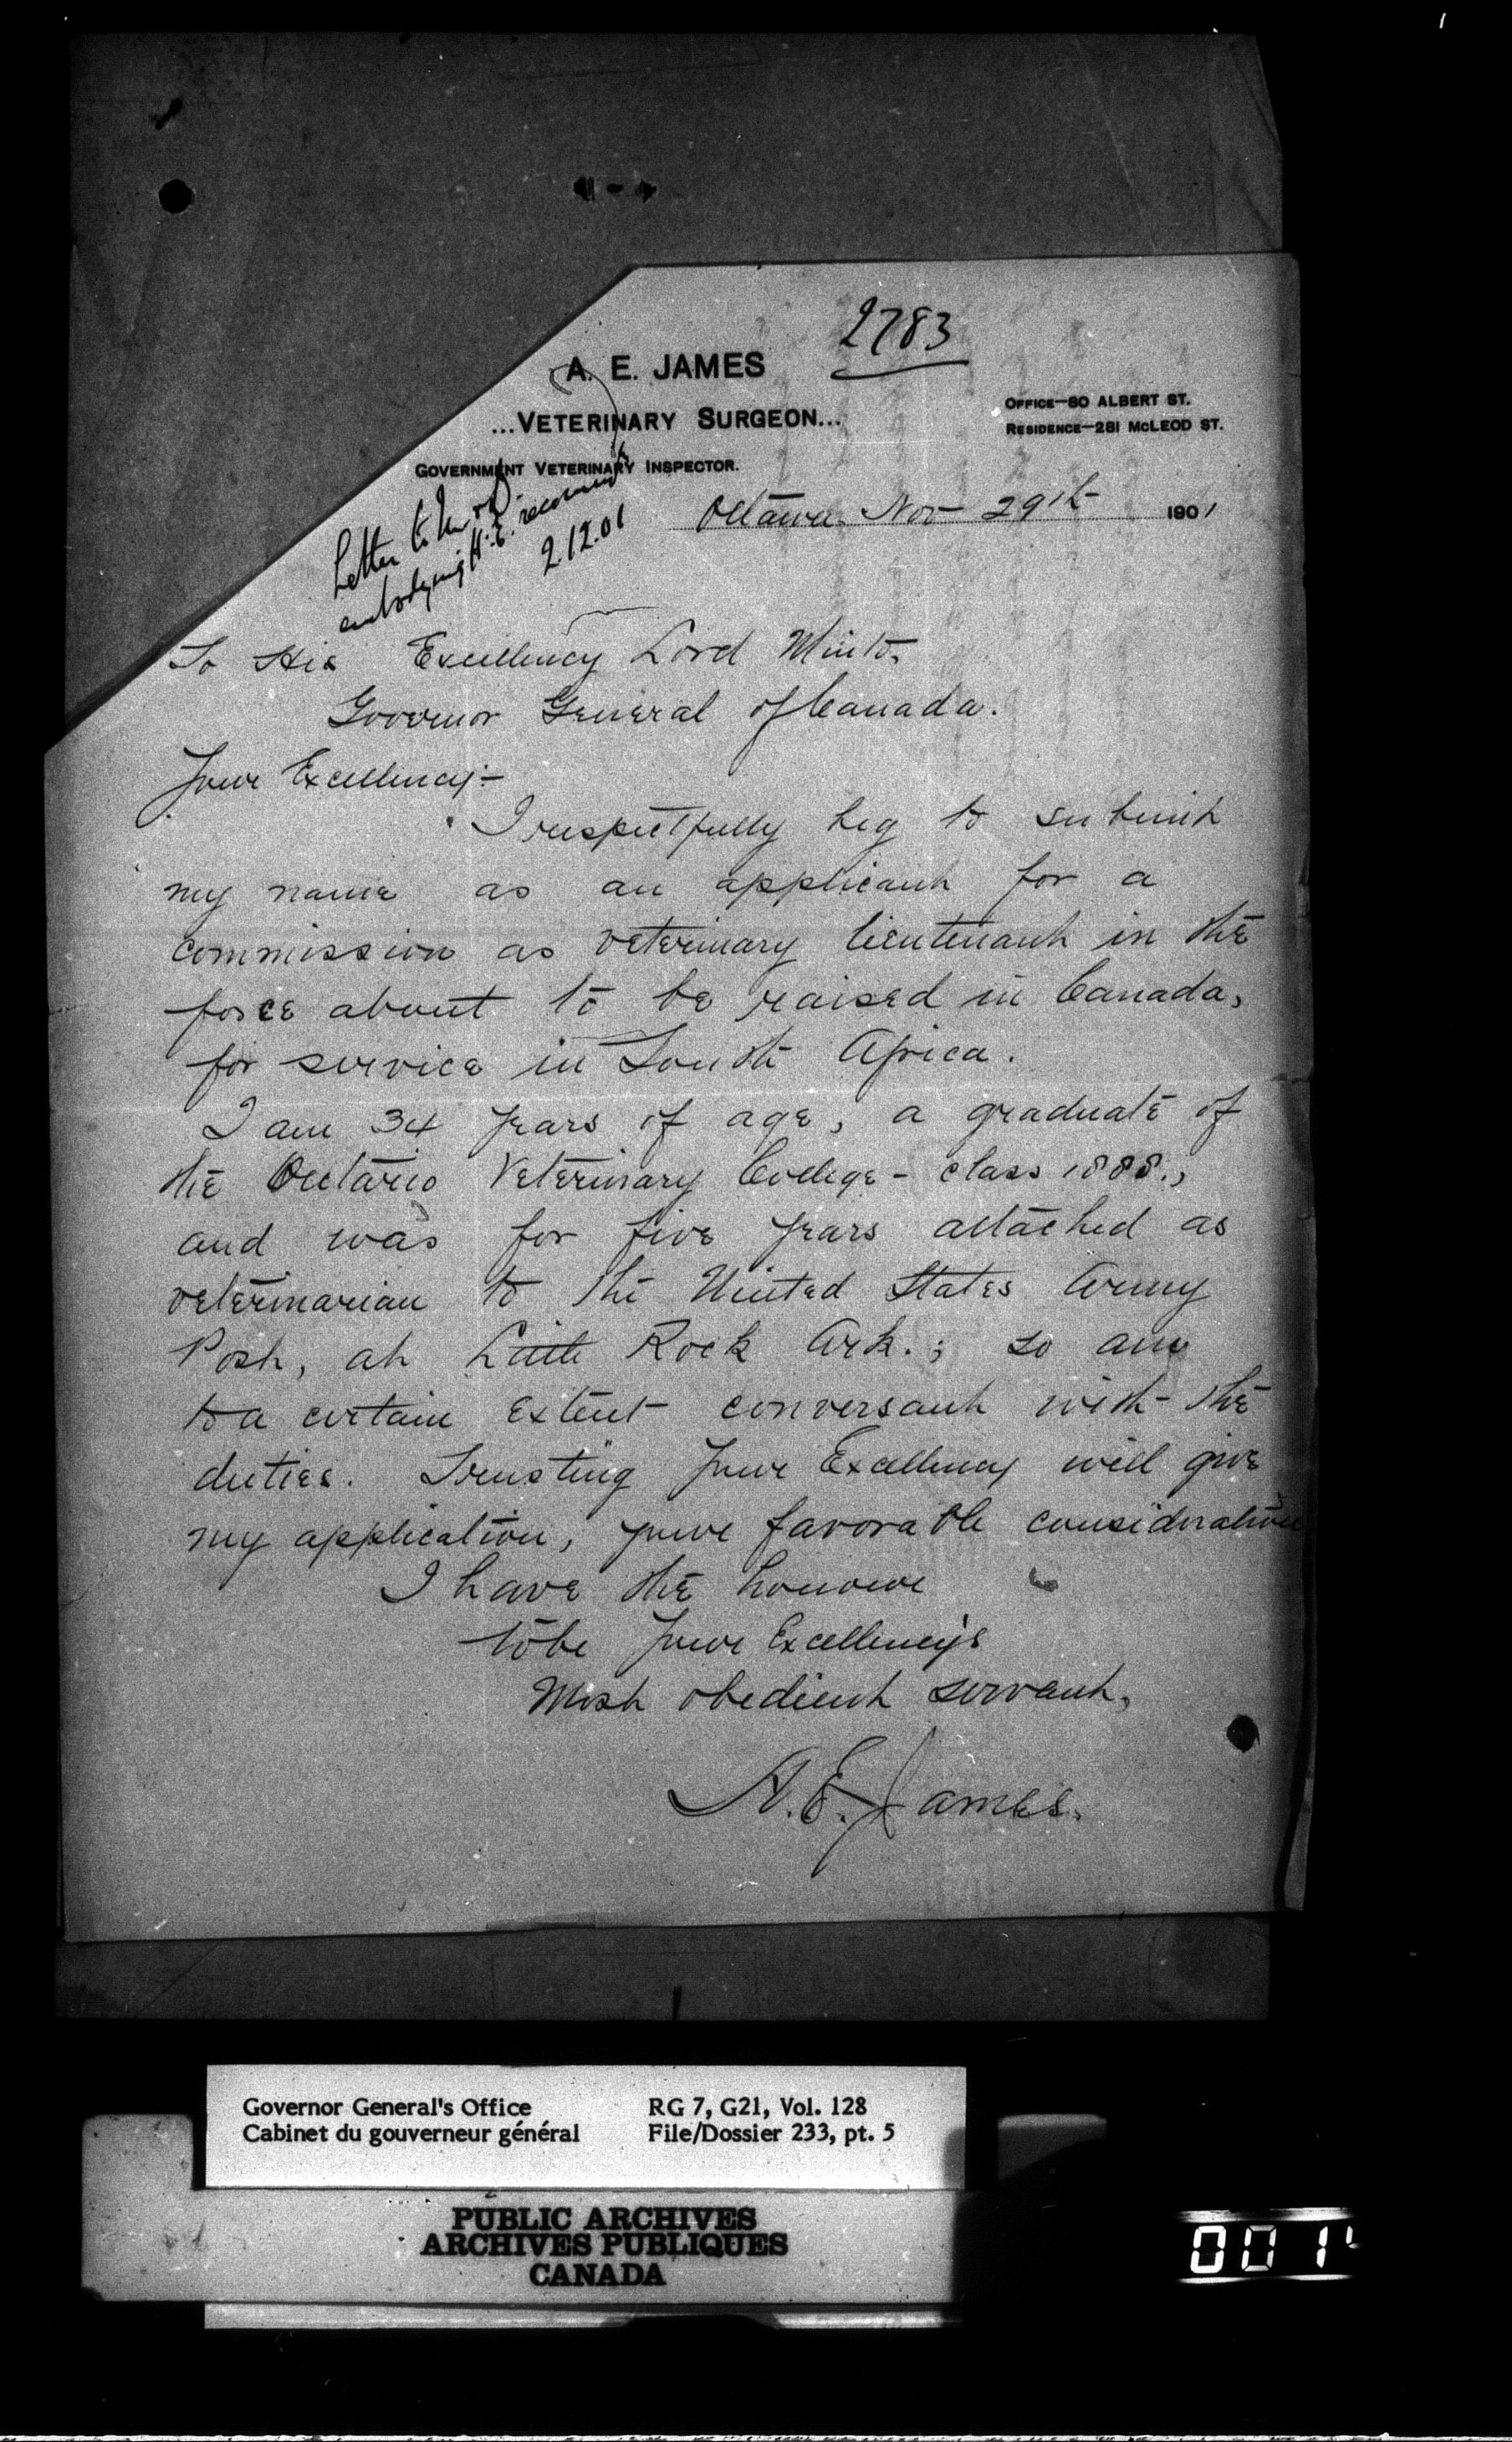 2783
A. E. JAMES
...VETERINARY SURGEON...
GOVERNMENT VETERINARY INSPECTOR.
OFFICE—80 ALBERT ST.
RESIDENCE—281 McLEOD ST.
Letter to
embodying H.E.
2.12.01
Ottawa Nov 29th 1901
To His Excellency Lord Minto,
Governor General of Canada.
Your Excellency:-
I respectfully beg to submit
my name as an applicant for a
commission as veterinary lieutenant in the
force about to be raised in Canada,
for service in South Africa.
I am 34 years of age, a graduate of
the Ontario Veterinary College - class 1888.,
and was for five years attached as
veterinarian to the United States Army
Post, at Little Rock Ark.; so am
to a certain extent conversant with the
duties. Trusting your Excellency will give
my application, your favorable consideration
I have the honour
to be Your Excellency's
Most obedient servant,
A. E. James.
Governor General's Office
Cabinet du gouverneur général
RG 7, G21, Vol. 128
File/Dossier 233, pt. 5
PUBLIC ARCHIVES
ARCHIVES PUBLIQUES
CANADA
001